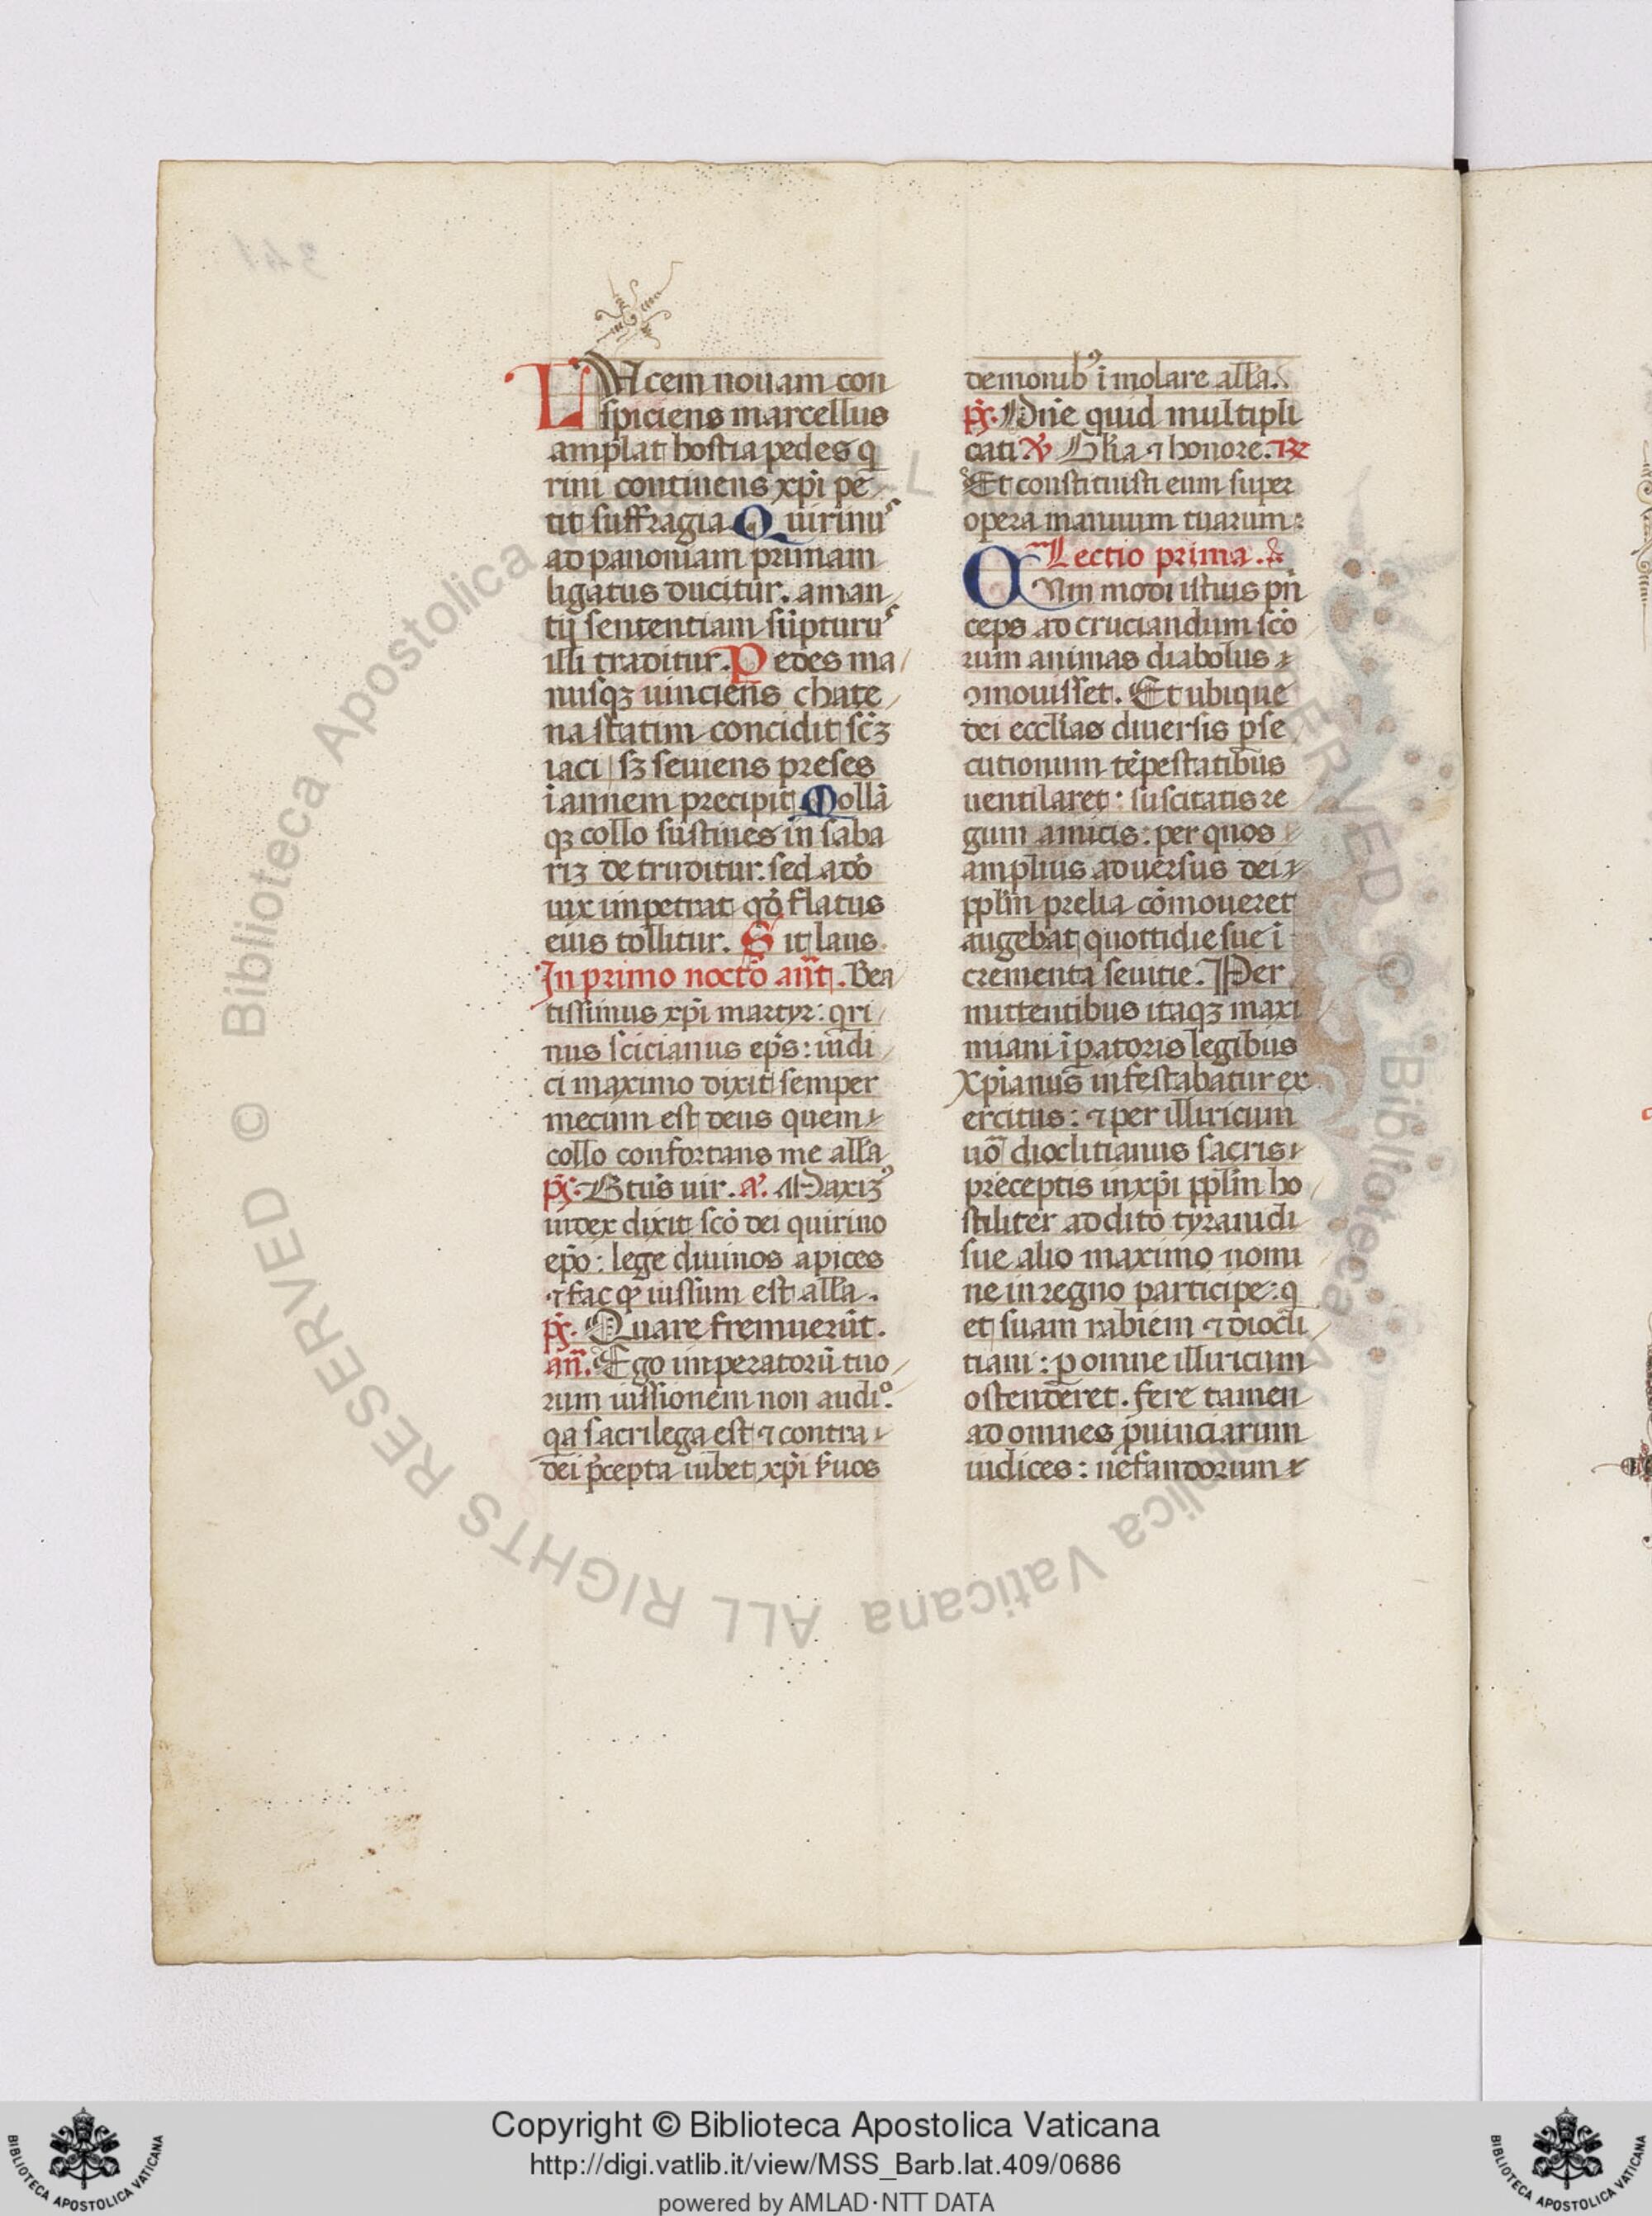 341
LUcem nouam con
spiciens marcellus
amplat hostia pedes q̄
rini continens xp̄i pe
tit suffragia. Quirinus
ad panoniam primam
ligatus ducitur. aman
tij sententiam sūpturus
illi traditur. Pedes ma
nusqꝫ uinciens chate
na statim concidit scꝫ
iaci sꝫ seuiens preses
ī amnem precipit. Mollā
qꝫ collo sustines in saba
riꝫ detruditur. sed adō
uix impetrat qd̄ flatus
eius tollitur. Sit laus.
In primo noctō ant̄. Bea
tissimus xp̄i martyr: qri
nus scicianus ep̄s: iudi
ci maximo dixit semper
mecum est deus quem
collo confortans me alla
p̄s. Btūs uir. a. Maxiꝫꝰ
iudex dixit scō dei quirino
ep̄o: lege diuinos apices
⁊ fac qͣ iussum est alla.
p̄s. Quare fremuerūt.
an̄. Ego imperatorū tuo
rum iussionem non audiº.
qa sacrilega est ⁊ contra
dei p̄cepta iubet xp̄i ẜuos
demonibꝰ īmolare alla.
p̄s. Dn̄e quid multipli
cati ℣ Glīa ⁊ honore. ℟
Et constituisti eum super
opera manuum tuarum:
Lectio prima.
QUm modi istius prī
ceps ad cruciandum scō
rum animas diabolus
ꝯmouisset. Et ubique
dei ecclīas diuersis ꝑse
cutionum tēpestatibus
uentilaret: suscitatis re
gum amicis: per quos
amplius aduersus dei
pplm̄ prelia cōmoueret
augebat quottidie sue ī
crementa seuitie. Per
mittentibus itaqꝫ maxi
miani īꝑatoris legibus
xp̄ianus infestabatur ex
ercitus: ⁊ per illiricum
uō dioclitianus sacris
preceptis in xp̄i pplm̄ ho
stiliter addito tyranidi
sue alio maximo nomi
ne in regno participe: q
et suam rabiem ⁊ diocli
tiani: ꝑ omne illiricum
ostenderet. fere tamen
ad omnes ꝓuinciarum
iudices: nefandorum
© Biblioteca Apostolica Vaticana ALL RIGHTS RESERVED
Copyright © Biblioteca Apostolica Vaticana
http://digi.vatlib.it/view/MSS_Barb.lat.409/0686
powered by AMLAD·NTT DATA
BIBLIOTECA APOSTOLICA VATICANA
BIBLIOTECA APOSTOLICA VATICANA